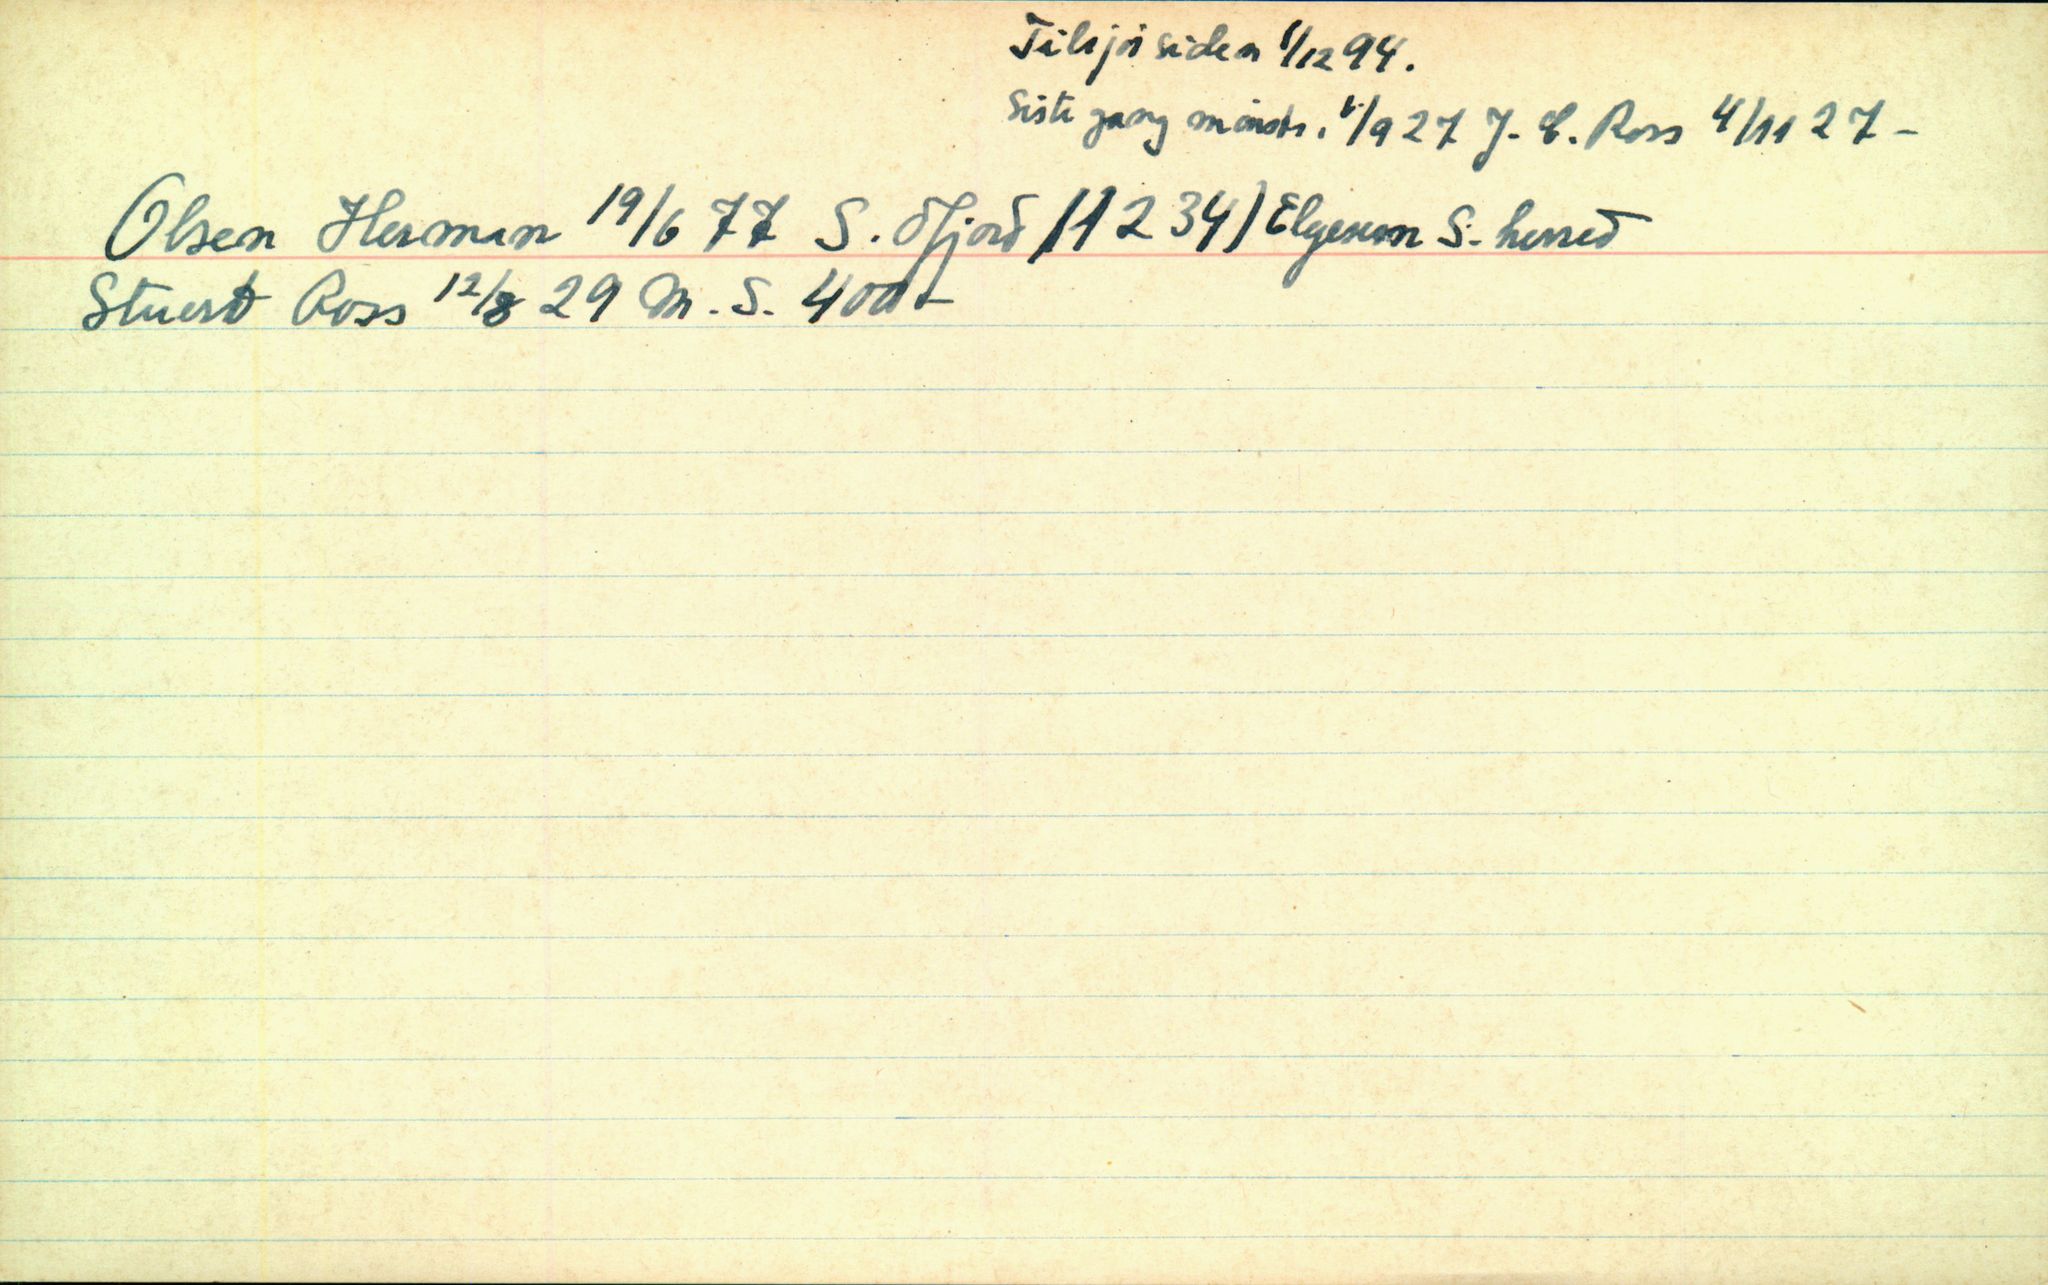 Til sjøs siden 1/12 94.
Siste gang mønstr. 1/9 27 J. C. Ross 4/11 27 -
Olsen Herman 19/6 77 S. dfjord (1234) Elgesem S. herred
Stuert Ross 12/8 29 M. S. 400 -